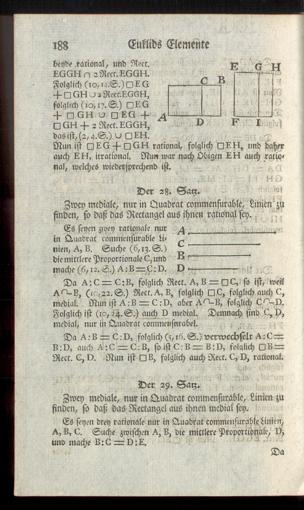 188 Euklids Elemente
beyde rational, und Rect.
EGGH ∩ 2 Rect. EGGH.
Folglich (10, 12. S.) □ EG
+ □ GH ∪ 2 Rect. EGGH,
folglich (10, 17. S.) □ EG
+ □ GH ∪ □ EG +
□ GH + 2 Rect. EGGH,
das ist, (2, 4. S.) ∪ □ EH.
E G H
C B
A D F I
Nun ist □ EG + □ GH rational, folglich □ EH, und daher
auch EH, irrational. Nun war nach Obigen EH auch ratio-
nal, welches wiedersprechend ist.
Der 28. Satz.
Zwey mediale, nur in Quadrat commensurable, Linien zu
finden, so daß das Rectangel aus ihnen rational sey.
Es seyen zwey rationale nur
in Quadrat commensurable Li-
nien, A, B. Suche (6, 13. S.)
die mittlere Proportionale C, und
mache (6, 12. S.) A : B = C : D.
A
C
B
D
Da A : C = C : B, folglich Rect. A, B = □ C, so ist, weil
A ∩ B, (10, 22. S.) Rect. A, B, folglich □ C, folglich auch C,
medial. Nun ist A : B = C : D, aber A ∩ B, folglich C ∩ D.
Folglich ist (10, 24. S.) auch D medial. Demnach sind C, D,
medial, nur in Quadrat commensurabel.
Da A : B = C : D, folglich (5, 16. S.) verwechselt A : C =
B : D, auch A : C = C : B, so ist C : B = B : D, folglich □ B =
Rect. C, D. Nun ist □ B, folglich auch Rect. C, D, rational.
Der 29. Satz.
Zwey mediale, nur in Quadrat commensurable, Linien zu
finden, so daß das Rectangel aus ihnen medial sey.
Es seyen drey rationale nur in Quadrat commensurable Linien,
A, B, C. Suche zwischen A, B, die mittlere Proportionale, D,
und mache B : C = D : E.
Da